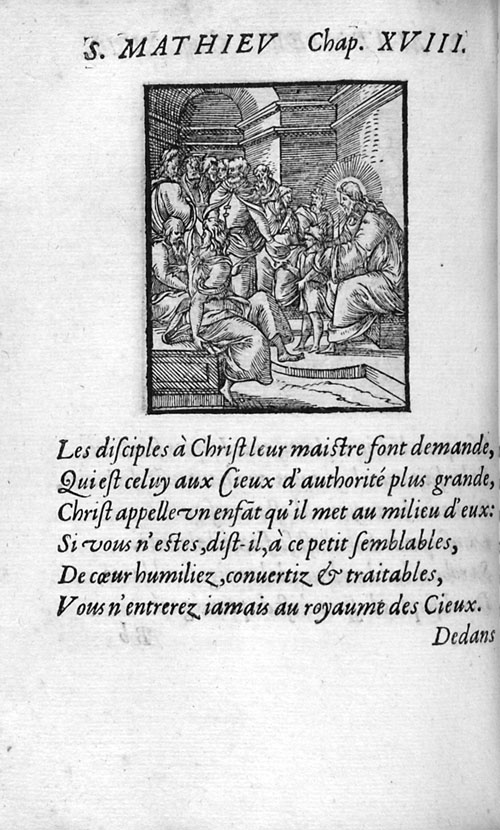 S. MATHIEV Chap. XVIII.
Les disciples à Christ leur maistre font demande,
Qui est celuy aux Cieux d'authorité plus grande,
Christ appelle vn enfāt qu'il met au milieu d'eux:
Si vous n'estes, dist-il, à ce petit semblables,
De cœur humiliez, conuertiz & traitables,
Vous n'entrerez iamais au royaume des Cieux.
Dedans